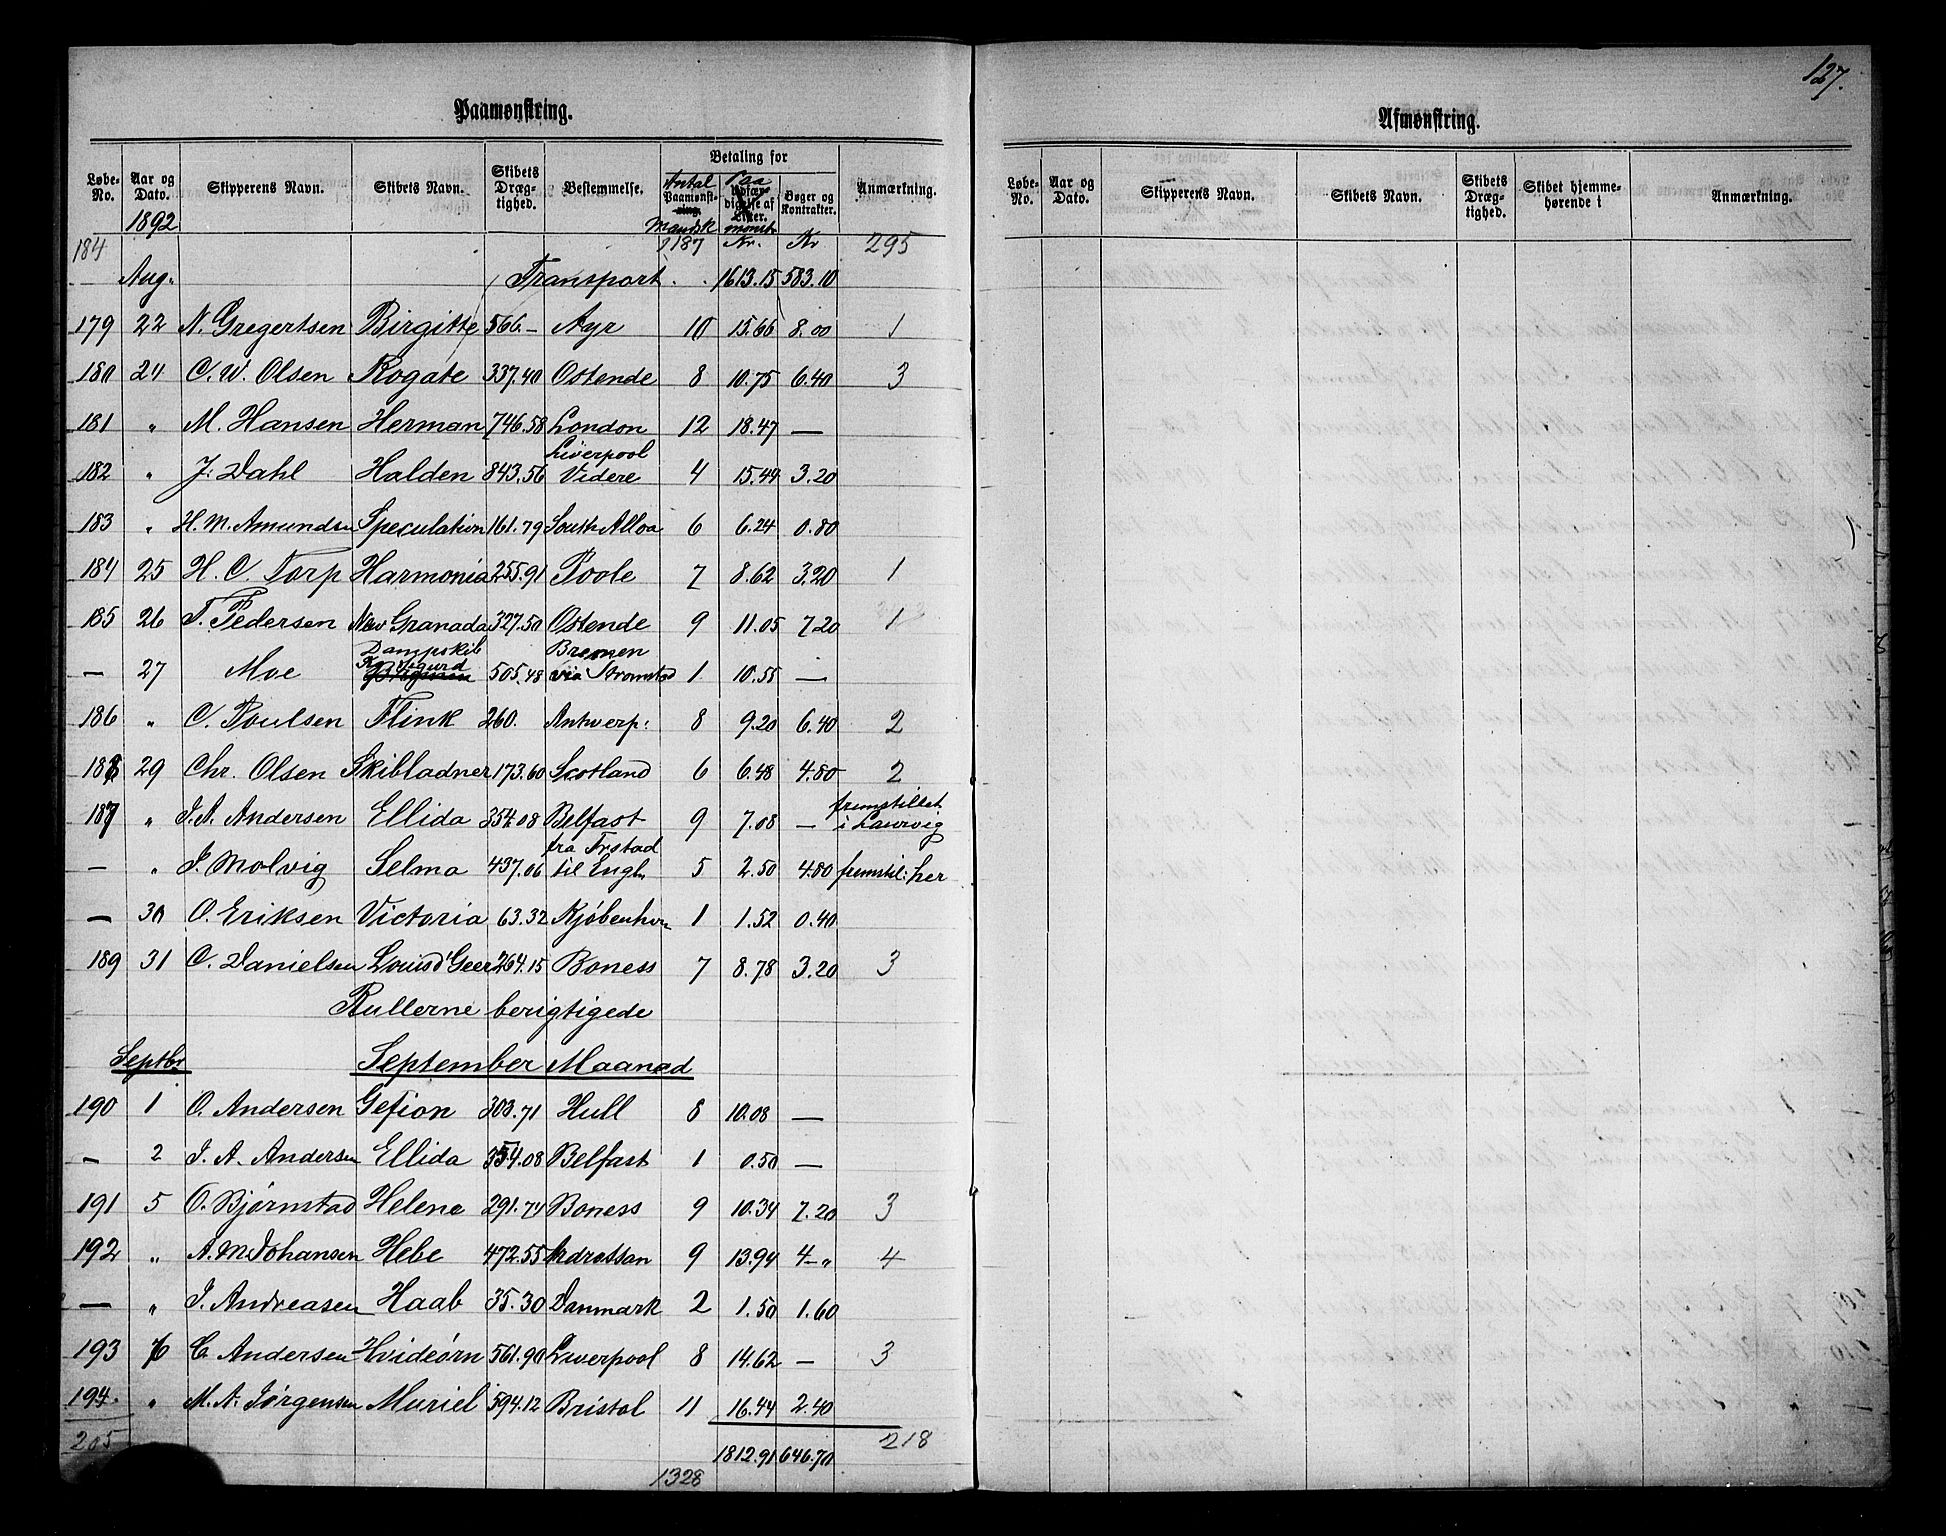 127.
Paamønstring.
Løbe-No. Aar og Dato. Skipperens Navn. Skibets Navn. Skibets Dræg-tighed. Bestemmelse. Betaling for Anmærkning.
Antal Paamønst-ering. Mandsk Paa Udfær-digelse af Lister. mønst. Bøger og Kontrakter.
1892
184 1187 Kr. Kr 295
Aug. Transport 1613.15 583.10
179 22 N. Gregertsen Birgitte 566.- Ayr 10 15.66 8.00 1
180 24 C. W. Olsen Rogate 337.40 Ostende 8 10.75 6.40 3
181 " M. Hansen Herman 746.58 London 12 18.47 —
182 " J. Dahl Halden 843.56 Liverpool Videre 4 15.44 3.20
183 " H. M. Amundsen Speculation 161.79 South Alloa 6 6.24 0.80
184 25 H. C. Torp Harmonia 255.91 Poole 7 8.62 3.20 1
185 26 T. Pedersen New Granada 327.50 Ostende 9 11.05 7.20 1
— 27 Moe Dampskib Kg Sigurd 505.48 Bremen via Strömstad 1 10.55 —
186 " C. Poulsen Flink 260. Antwerp: 8 9.20 6.40 2
188 29 Chr. Olsen Skibladner 173.60 Scotland 6 6.48 4.80 2
187 " J. A. Andersen Ellida 354.08 Belfast 9 7.08 — fremstillet i Laurvig
— " J. Molvig Selma 437.06 fra Frstad til Engl. 5 2.50 4.80 fremstil: her
— 30 O. Eriksen Victoria 63.32 Kjöbenhvn 1 1.52 0.40
189 31 C. Danielsen Louis d'Geer 264.15 Boness 7 8.78 3.20 3
Rullerne berigtigede
Septbr September Maaned
190 1 O. Andersen Gefion 303.71 Hull 8 10.08 —
— 2 J. A. Andersen Ellida 354.08 Belfast 1 0.50 —
191 5 O. Bjørnstad Helene 291.74 Boness 9 10.34 7.20 3
192 " A. M. Johansen Hebe 472.55 Ardrossan 9 13.94 4-" 4
— " J. Andreasen Haab 35.30 Danmark 2 1.50 1.60
193 6 C. Andersen Hvideørn 561.90 Liverpool 8 14.62 — 3
194. " M. A. Jørgensen Muriel 594.12 Bristol 11 16.44 2.40
205 1812.91 646.70 218
1328
Afmønstring.
Løbe-No. Aar og Dato. Skipperens Navn. Skibets Navn. Skibets Dræg-tighed. Skibet hjemme-hørende i Anmærkning.